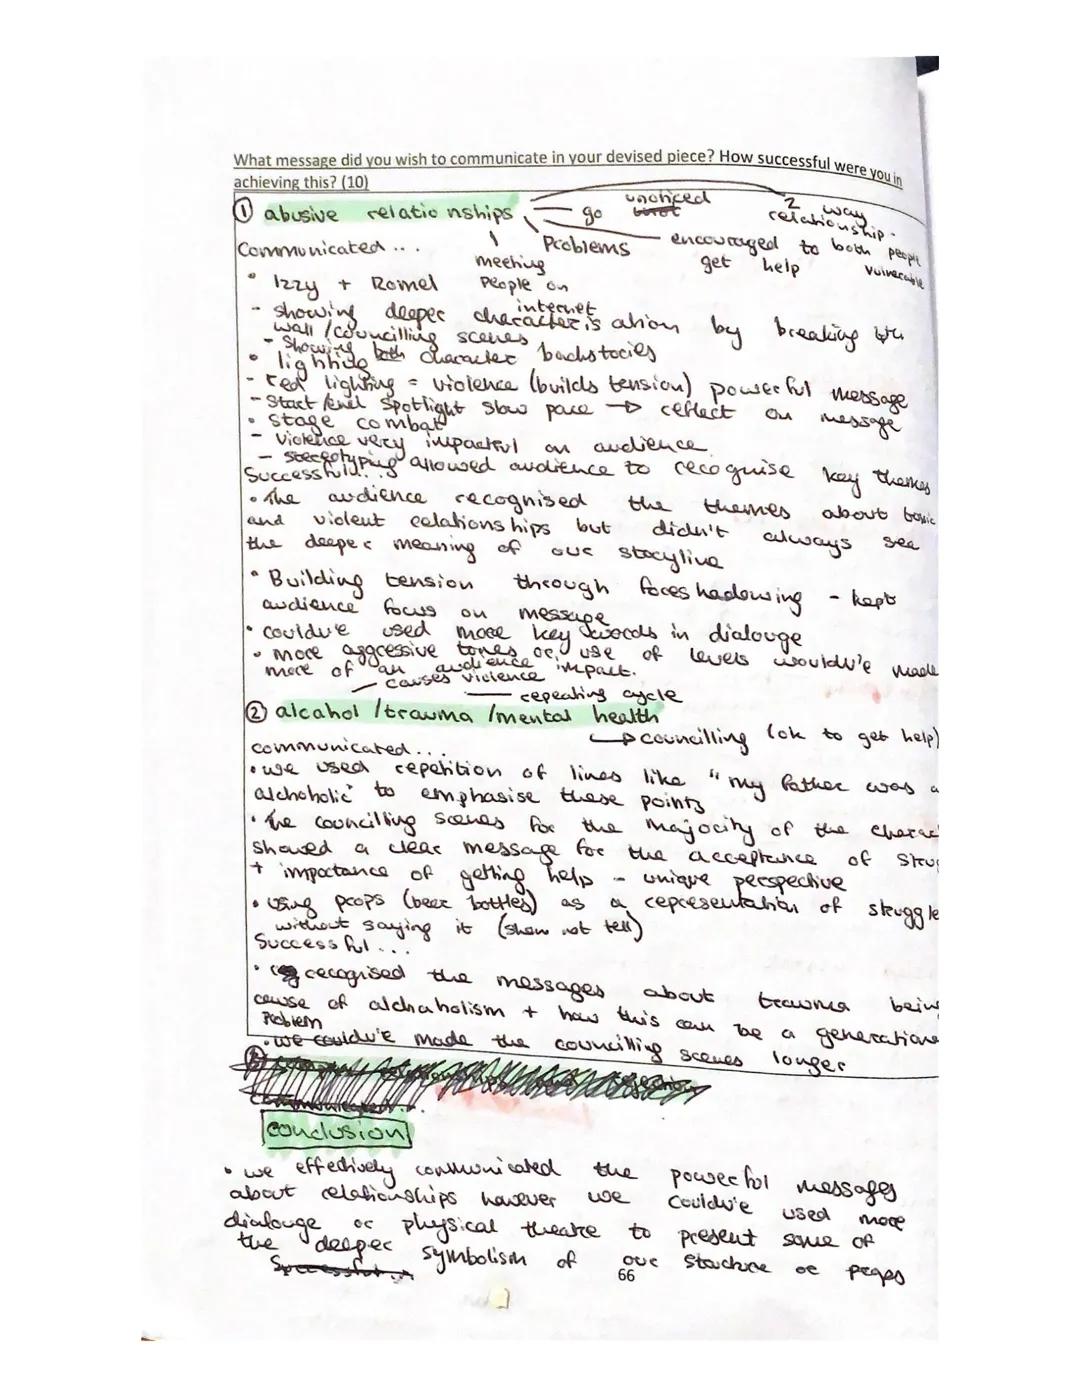 What message did you wish to communicate in your devised piece? How successful were you in
achieving this? (10)
① abusive relationships
go unoticed
2 way relationship - both people vulnerable
Problems meeting people on internet
encouraged to get help
Communicated...
• Izzy + Romel
- showing deeper characterisation by breaking 4th
wall / councilling scenes
- Showing both character backstories
• lighting
- red lighting = violence (builds tension) powerful message
- Start/end spotlight slow pace → reflect on message
• stage combat
- violence very impactful on audience
- stereotyping allowed audience to recognise key themes
Successful...
• The audience recognised the themes about toxic
and violent relationships but didn't always see
the deeper meaning of our storyline
• Building tension through foreshadowing - kept
audience focus on message
• couldv'e used more key words in dialouge
• more aggressive tones or use of levels wouldv'e made
more of an audience impact.
causes violence
repeating cycle
② alcahol /trauma /mental health
→ councilling (ok to get help)
communicated...
• we used repetition of lines like "my father was a
alchoholic" to emphasise these points
• The councilling scenes for the majority of the charac
showed a clear message for the acceptance of strug
+ importance of getting help - unique perspective
• using props (beer bottles) as a representation of struggle
without saying it (show not tell)
Successful...
• recognised the messages about trauma being
cause of alchaholism + how this can be a generationa
Problem
• we couldv'e made the councilling scenes longer
communicated...
conclusion
• we effectively communicated the powerful messages
about relationships however we couldv'e used more
dialouge or physical theatre to present some of
the deeper symbolism of our structure or props
Successful...
66